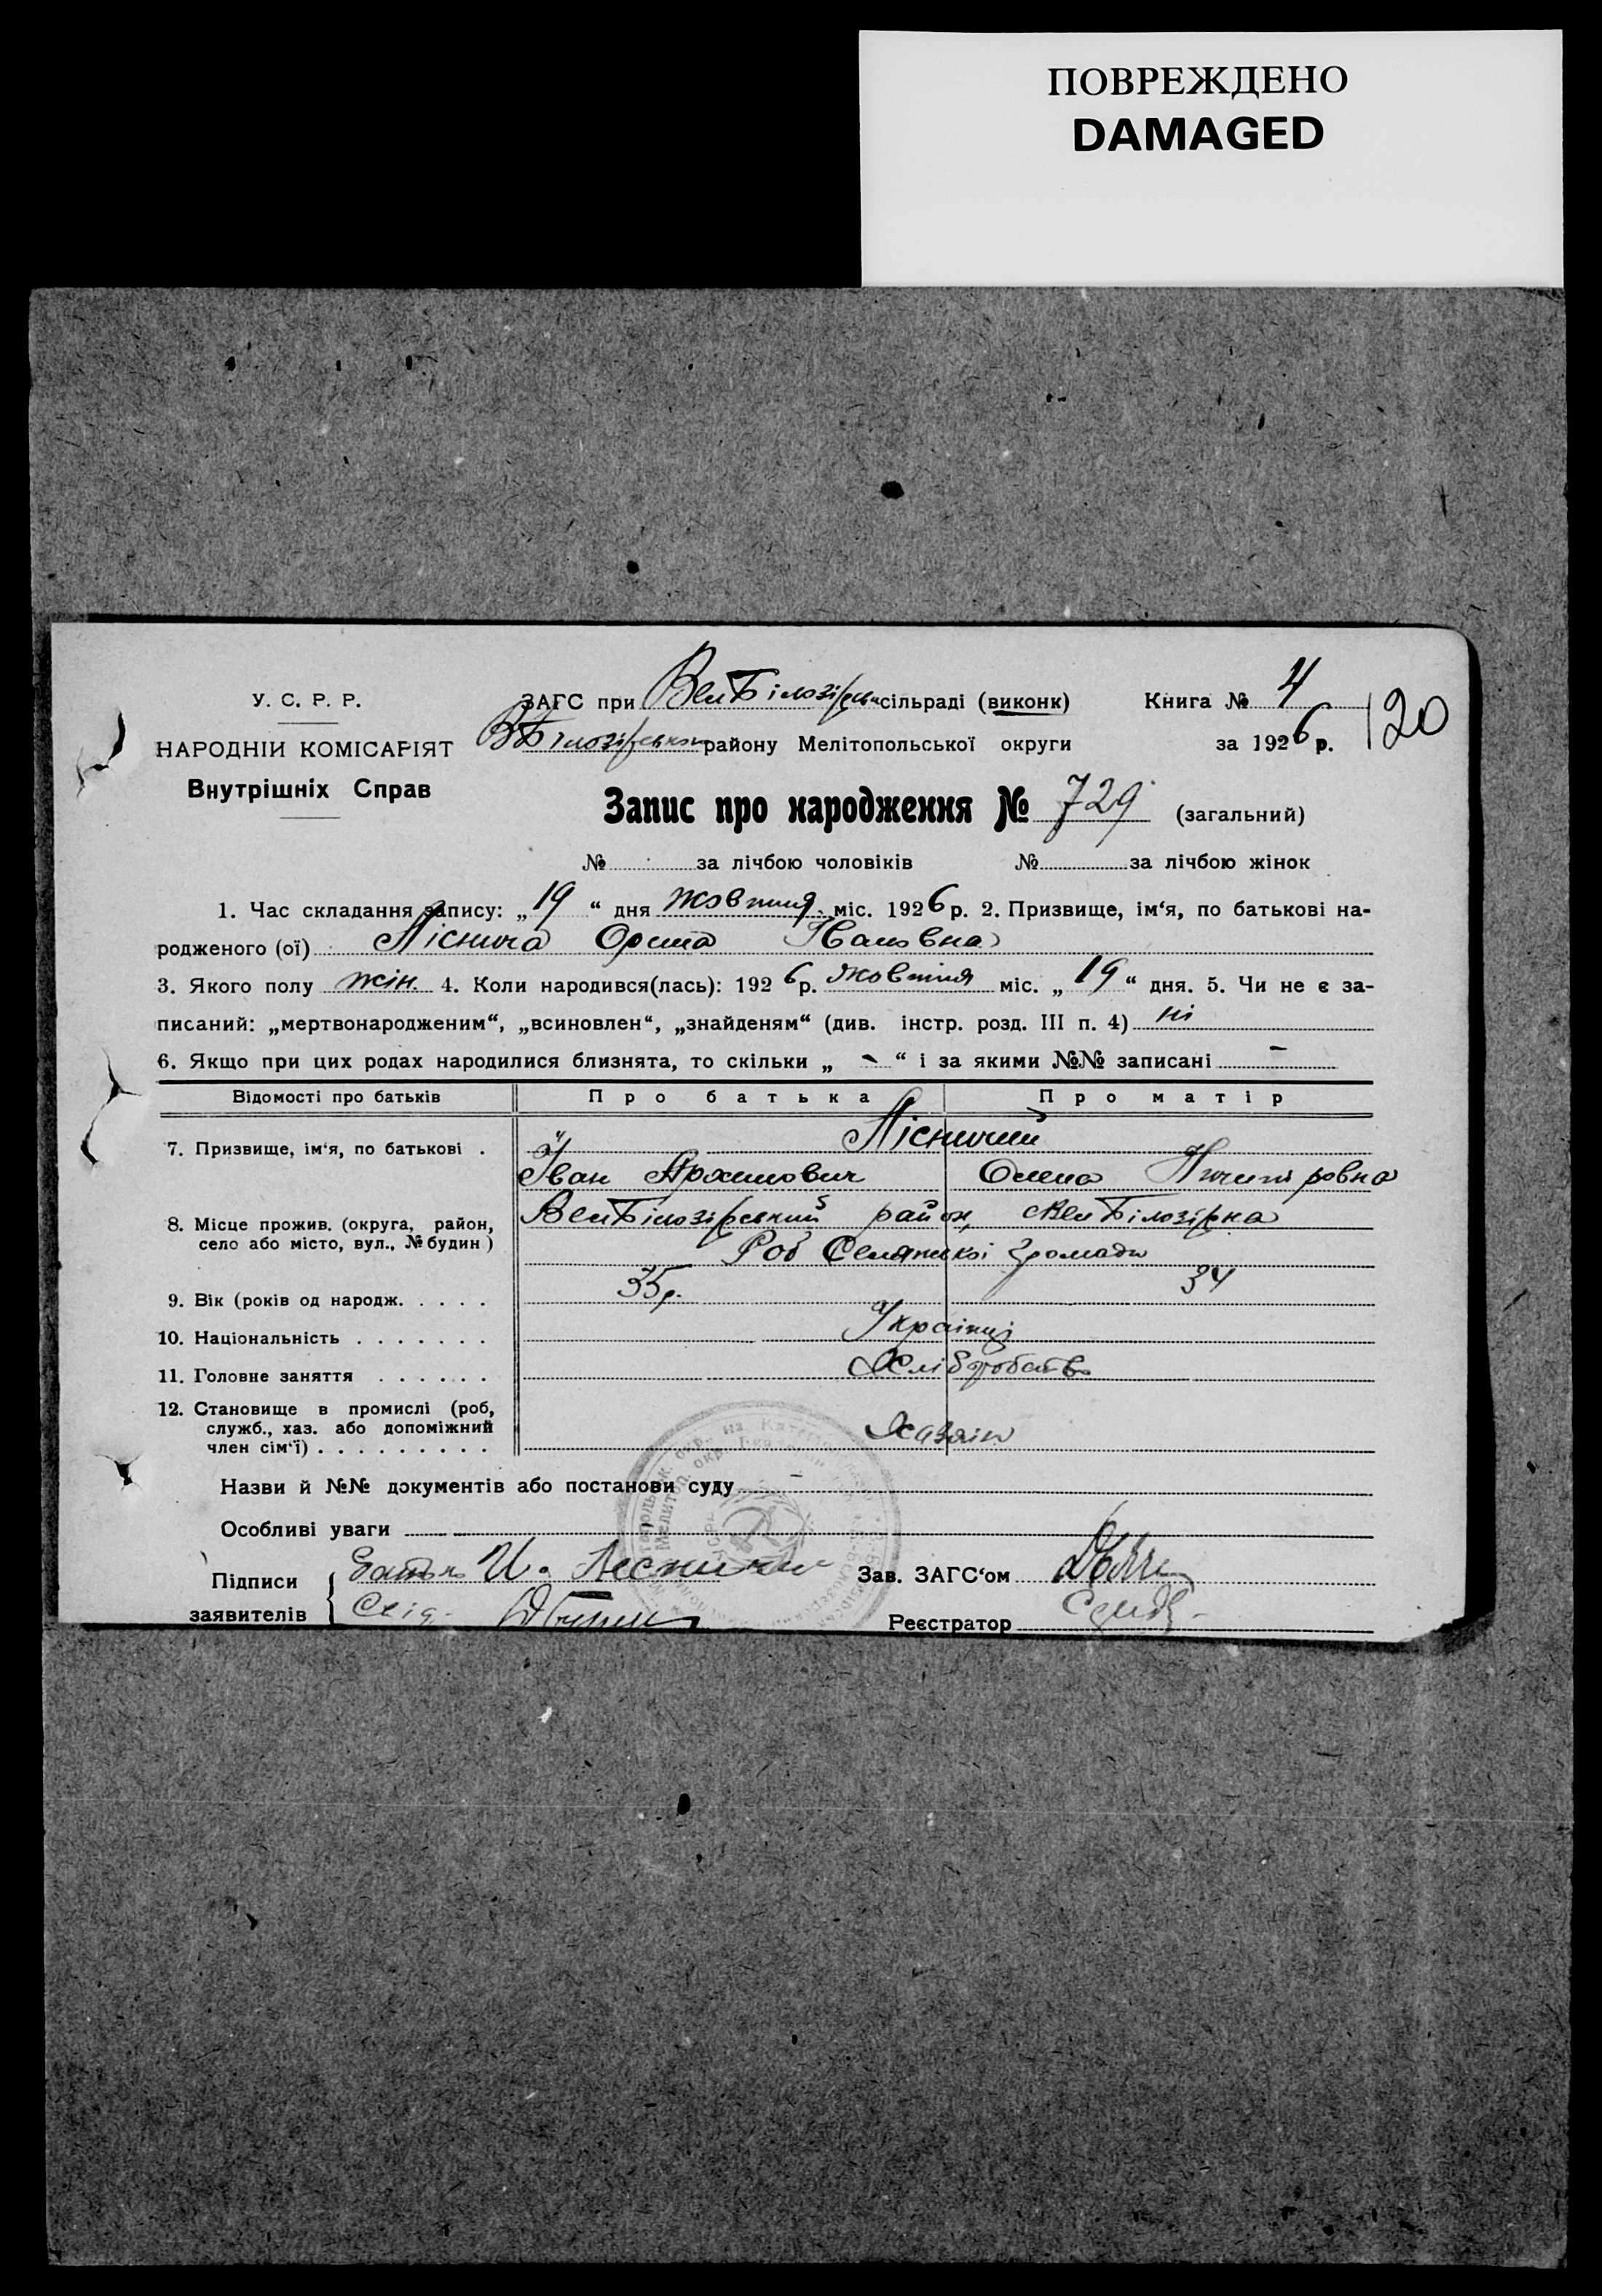 ПОВРЕЖДЕНО
DAMAGED
У. С. Р. Р.
НАРОДНІИ КОМІСАРІЯТ
Внутрішніх Справ
ЗАГС при ВелБілозірськ сільраді (виконк) Книга № 4
ВБілозірського району Мелітопольської округи за 1926 р. 120
Запис про народження № 729 (загальний)
№ за лічбою чоловіків № за лічбою жінок
1. Час складання запису: „19“ дня жовтня міс. 1926 р. 2. Призвище, ім‘я, по батькові на-
родженого (ої)Ліснича Орина Івановна
3. Якого полу жін. 4. Коли народився(лась): 1926 р. жовтня міс. „19“ дня. 5. Чи не є за-
писаний: „мертвонародженим“, „всиновлен“, „знайденям“ (див. інстр. розд. III п. 4) ні
6. Якщо при цих родах народилися близнята, то скільки „ - “ і за якими №№ записані -
Відомості про батьків Про батька Про матір
7. Призвище, ім‘я, по батькові . Лісничий
Іван Архипович Олена
8. Місце прожив. (округа, район, село або місто, вул., № будин) ВелБілозірський район, ВелБілозірка
Роб Селянської громади
9. Вік (років од народж. . . . . 35 р. 34
10. Національність . . . . . . . Українці
11. Головне заняття . . . . . . Хліборобство
12. Становище в промислі (роб, служб., хаз. або допоміжний член сім‘ї) . . . . . . . . . Хазяїн
Назви й №№ документів або постанови суду -
Особливі уваги
Підписи заявителів { Батько И. Леснични Зав. ЗАГС‘ом
Свід. Реєстратор